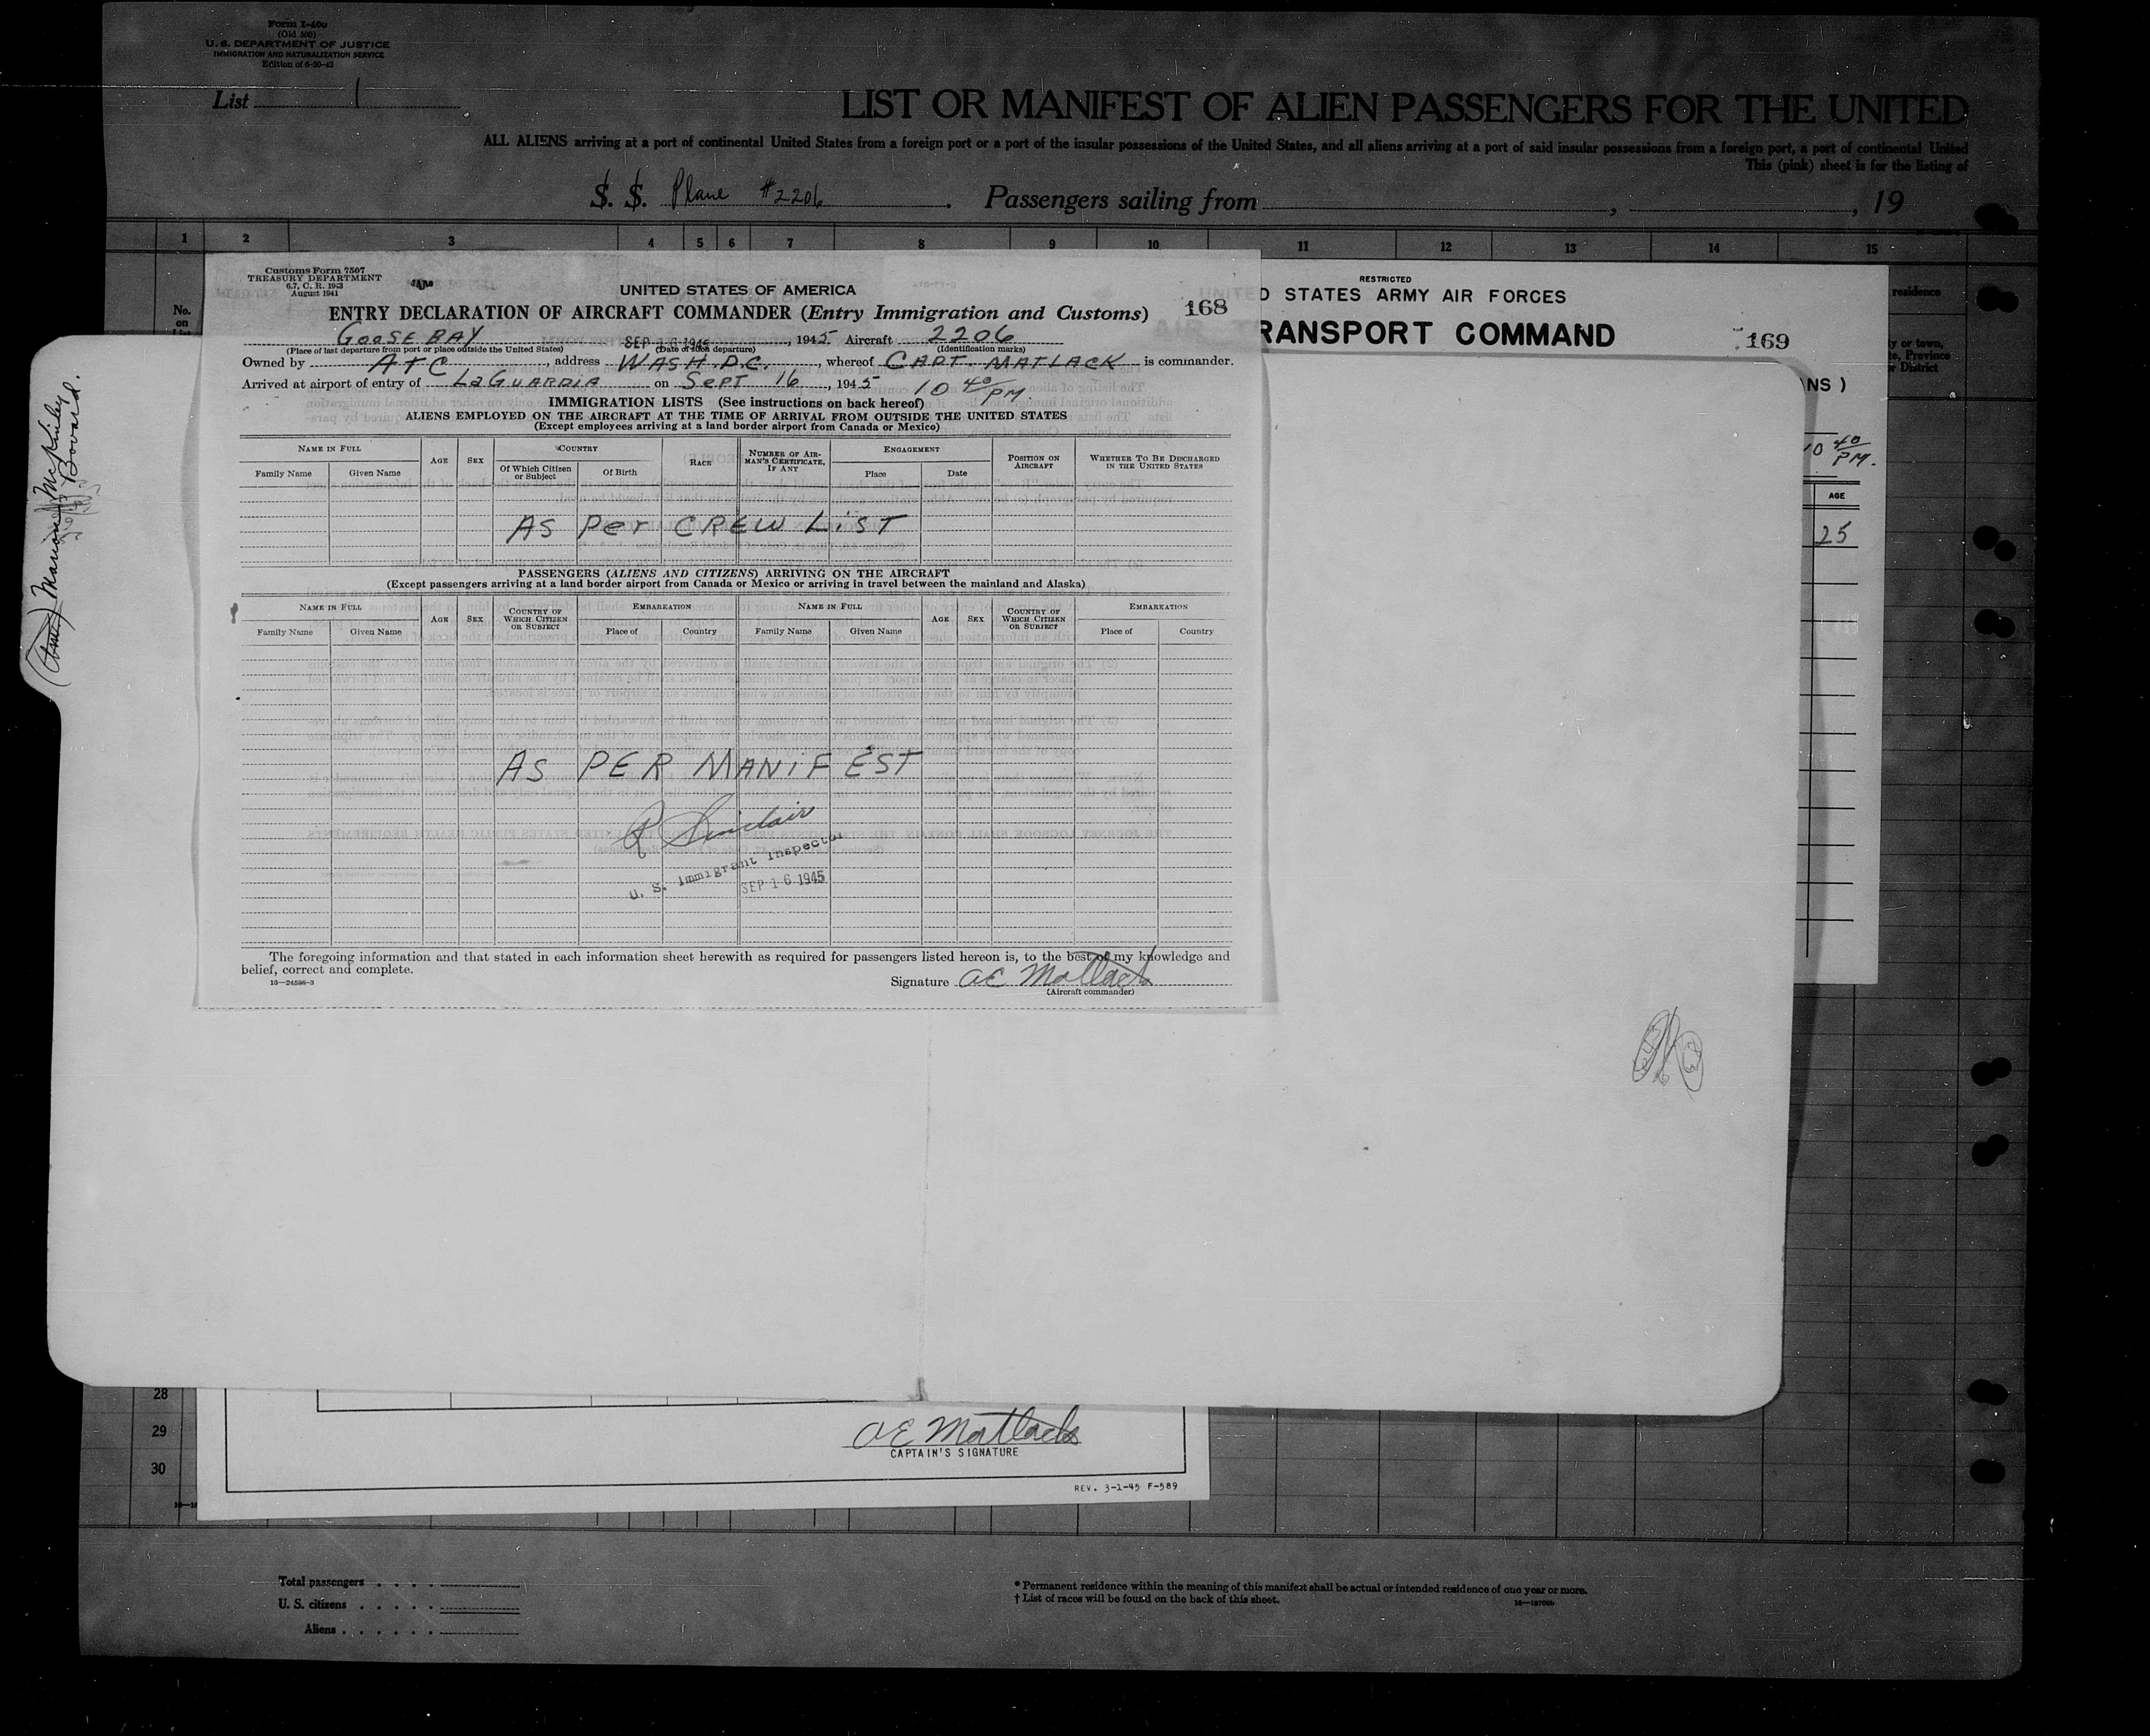 Form I-400
(Old 500)
U. S. DEPARTMENT OF JUSTICE
IMMIGRATION AND NATURALIZATION SERVICE
Edition of 6-20-42
List 1
LIST OR MANIFEST OF ALIEN PASSENGERS FOR THE UNITED
ALL ALIENS arriving at a port of continental United States from a foreign port or a port of the insular possessions of the United States, and all aliens arriving at a port of said insular possessions from a foreign port, a port of continental United
This (pink) sheet is for the listing of
S. S. Plane #2206. Passengers sailing from , , 19
1 2 3 4 5 6 7 8 9 10 11 12 13 14 15
No.
on
residence
y or town,
te, Province
r District
Customs Form 7507
TREASURY DEPARTMENT
6.7, C. R. 1943
August 1941
UNITED STATES OF AMERICA
ENTRY DECLARATION OF AIRCRAFT COMMANDER (Entry Immigration and Customs) 168
GOOSE BAY SEP 16 1945, 1945 Aircraft 2206
(Place of last departure from port or place outside the United States) (Date of such departure) (Identification marks)
Owned by ATC, address WASH. D.C., whereof CAPT. MATLACK is commander.
Arrived at airport of entry of LaGUARDIA on SEPT 16, 1945 10 40/PM.
IMMIGRATION LISTS (See instructions on back hereof)
ALIENS EMPLOYED ON THE AIRCRAFT AT THE TIME OF ARRIVAL FROM OUTSIDE THE UNITED STATES
(Except employees arriving at a land border airport from Canada or Mexico)
NAME IN FULL AGE SEX COUNTRY RACE NUMBER OF AIRMAN'S CERTIFICATE, IF ANY ENGAGEMENT POSITION ON AIRCRAFT WHETHER TO BE DISCHARGED IN THE UNITED STATES
Family Name Given Name Of Which Citizen or Subject Of Birth Place Date
AS Per CREW LiST
PASSENGERS (ALIENS AND CITIZENS) ARRIVING ON THE AIRCRAFT
(Except passengers arriving at a land border airport from Canada or Mexico or arriving in travel between the mainland and Alaska)
NAME IN FULL AGE SEX COUNTRY OF WHICH CITIZEN OR SUBJECT EMBARKATION NAME IN FULL AGE SEX COUNTRY OF WHICH CITIZEN OR SUBJECT EMBARKATION
Family Name Given Name Place of Country Family Name Given Name Place of Country
AS PER MANiFEST
R Sinclair
U. S. Immigrant Inspector
SEP 16 1945
The foregoing information and that stated in each information sheet herewith as required for passengers listed hereon is, to the best of my knowledge and
belief, correct and complete.
16—24598-3
Signature AE Matlack
(Aircraft commander)
RESTRICTED
UNITED STATES ARMY AIR FORCES
RANSPORT COMMAND
169
NS )
10 40/PM.
AGE
25
Marion McKinley
Bovard.
28
29
30
AE Matlack
CAPTAIN'S SIGNATURE
REV. 3-1-45 F-589
Total passengers
U. S. citizens
Aliens
* Permanent residence within the meaning of this manifest shall be actual or intended residence of one year or more.
† List of races will be found on the back of this sheet.